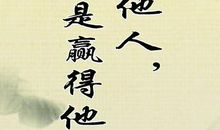 他人，
是赢得他